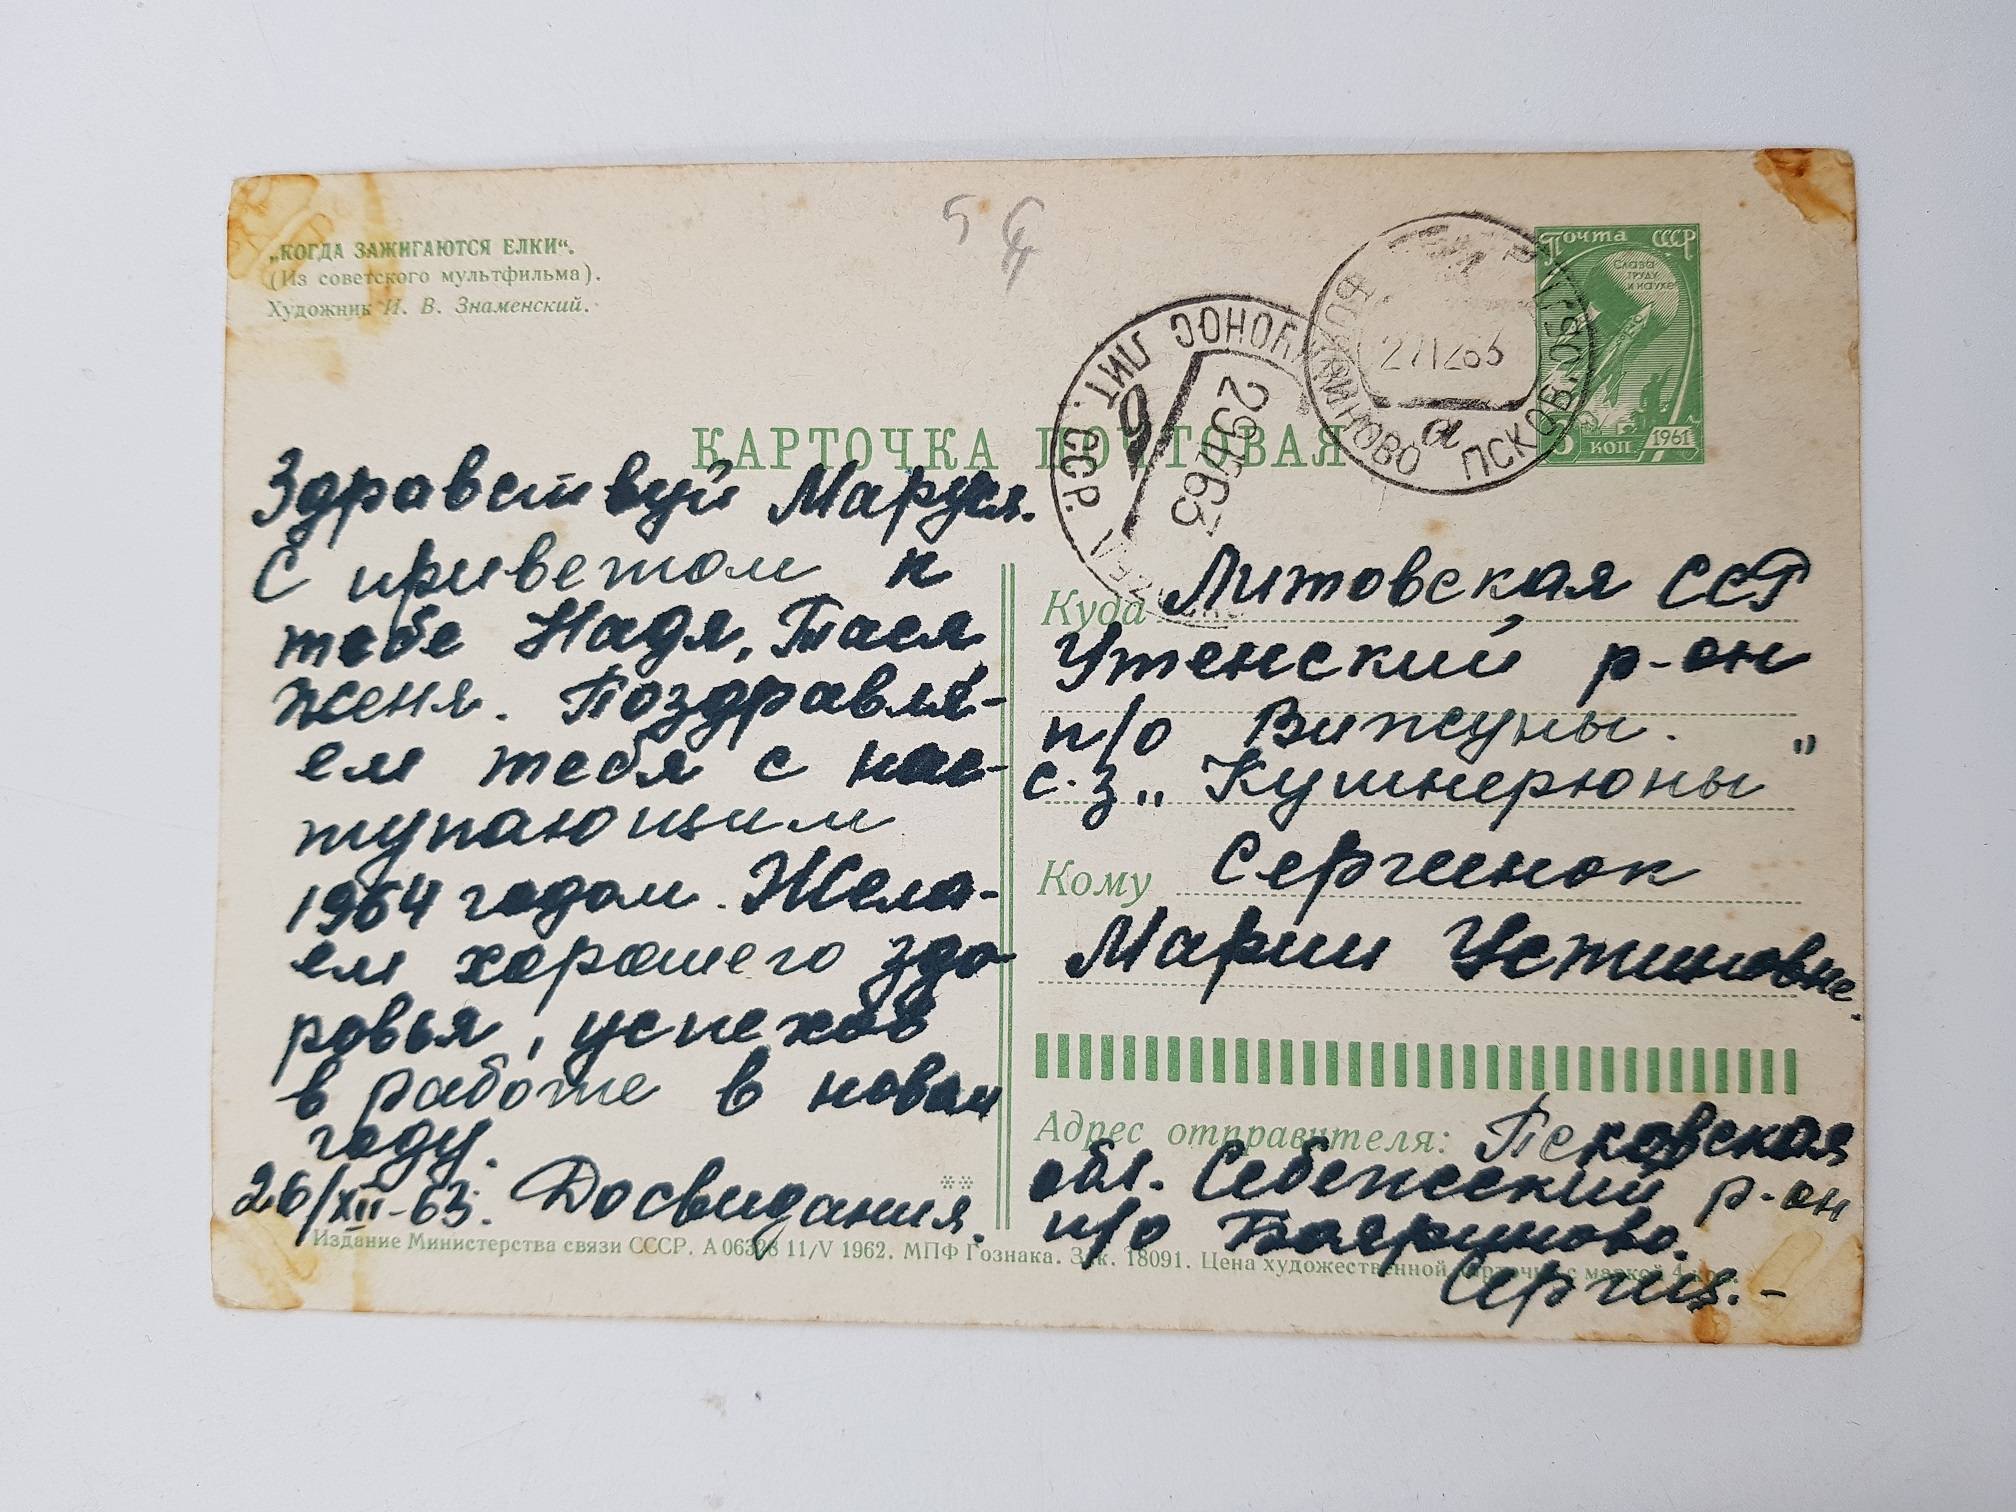 „КОГДА ЗАЖИГАЮТСЯ ЕЛКИ“.
(Из советского мультфильма).
Художник И. В. Знаменский.
5
Почта СССР
Слава
труду
и науке
КОП. 1961
БОЯРИНОВО ПСКОВ. ОБЛ.
271263
а
ЛИТ. ССР.
291263
КАРТОЧКА ПОЧТОВАЯ
Здравствуй Маруся.
С приветом к
тебе Надя, Тася
Женя. Поздравля-
ем тебя с нас-
тупающим
1964 годом. Жела-
ем хорошего здо-
ровья, успехов
в работе в новом
году.
26/XII-63. Досвидания.
Куда Литовская ССР
Утенский р-он
п/о Вижуны.
с.з „Кушнерюны"
Кому Сергиенок
Марии Устиновне.
Адрес отправителя: Псковская
обл. Себежский р-он
п/о Бояриново.
Сергиц.-
Издание Министерства связи СССР. А 06328 11/V 1962. МПФ Гознака. Зак. 18091. Цена художественной карточки с маркой 4 коп.